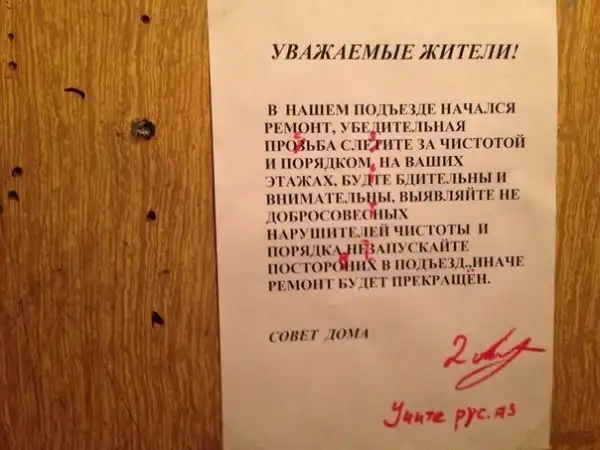 УВАЖАЕМЫЕ ЖИТЕЛИ!
В НАШЕМ ПОДЪЕЗДЕ НАЧАЛСЯ
РЕМОНТ, УБЕДИТЕЛЬНАЯ
ПРОЗЬБА СЛЕТИТЕ ЗА ЧИСТОТОЙ
И ПОРЯДКОМ, НА ВАШИХ
ЭТАЖАХ, БУДТЕ БДИТЕЛЬНЫ И
ВНИМАТЕЛЬНЫ, ВЫЯВЛЯЙТЕ НЕ
ДОБРОСОВЕСНЫХ
НАРУШИТЕЛЕЙ ЧИСТОТЫ И
ПОРЯДКА,НЕЗАПУСКАЙТЕ
ПОСТОРОНИХ В ПОДЪЕЗД.,ИНАЧЕ
РЕМОНТ БУДЕТ ПРЕКРАЩЁН.
СОВЕТ ДОМА
2
Учите рус. яз